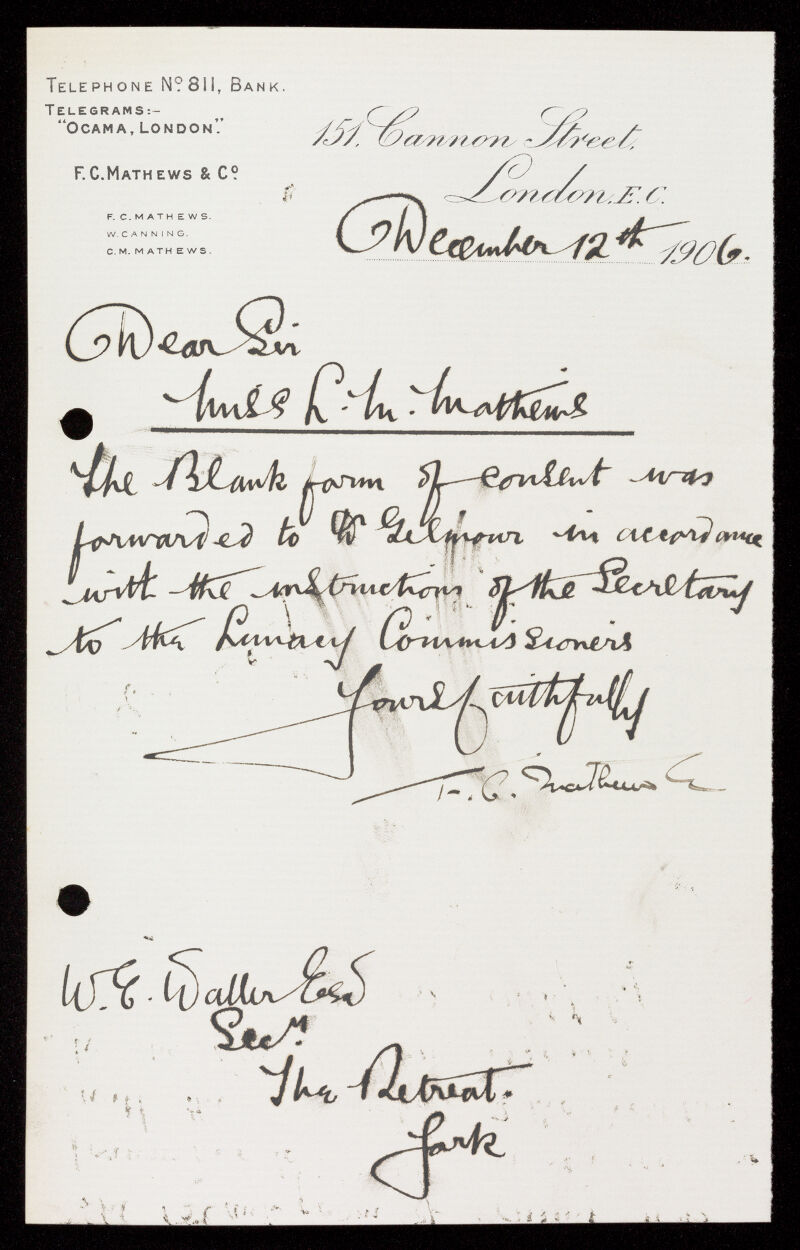 TELEPHONE No. 811, BANK.
TELEGRAMS:-
"OCAMA, LONDON."
F.C. MATHEWS & Co.
F. C. MATHEWS.
W. CANNING.
C. M. MATHEWS.
151, Cannon Street,
London, E.C.
December 12th 1906.
Dear Sir
Miss L. M. Mathews
The Blank form of consent was
forwarded to Dr Gilmour in accordance
with the instructions of the Secretary
to the Lunacy Commissioners
Yours faithfully
F. C. Mathews
W. E. Waller Esq
Secy.
The Retreat.
York